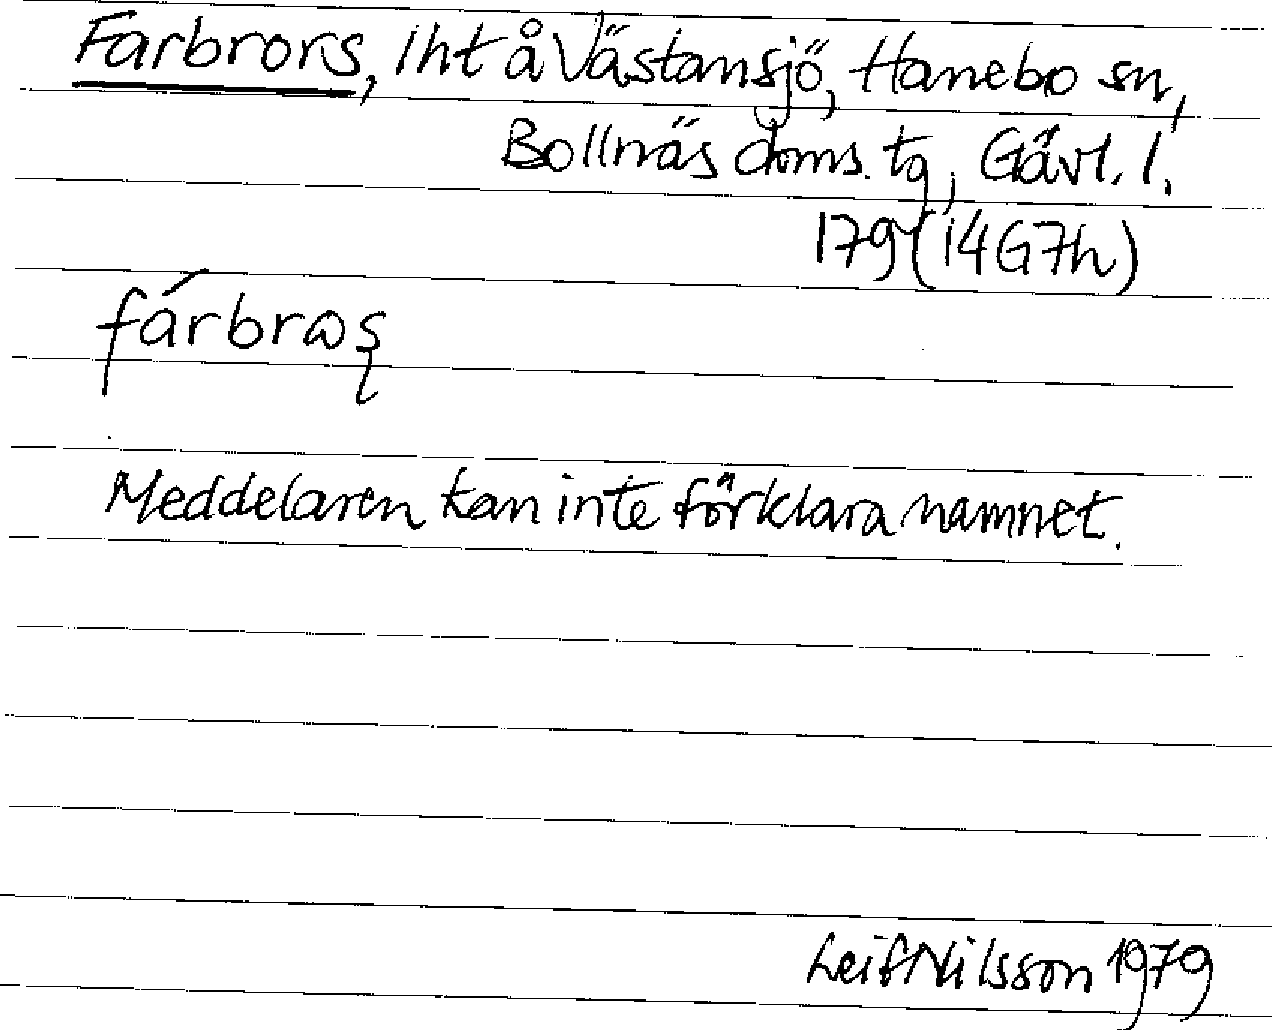 Farbrors, lht å Västansjö, Hanebo sn,
Bollnäs doms. tg, Gävl. l.
179 (14G7h)
fárbrɷʂ
Meddelaren kan inte förklara namnet.
Leif Nilsson 1979